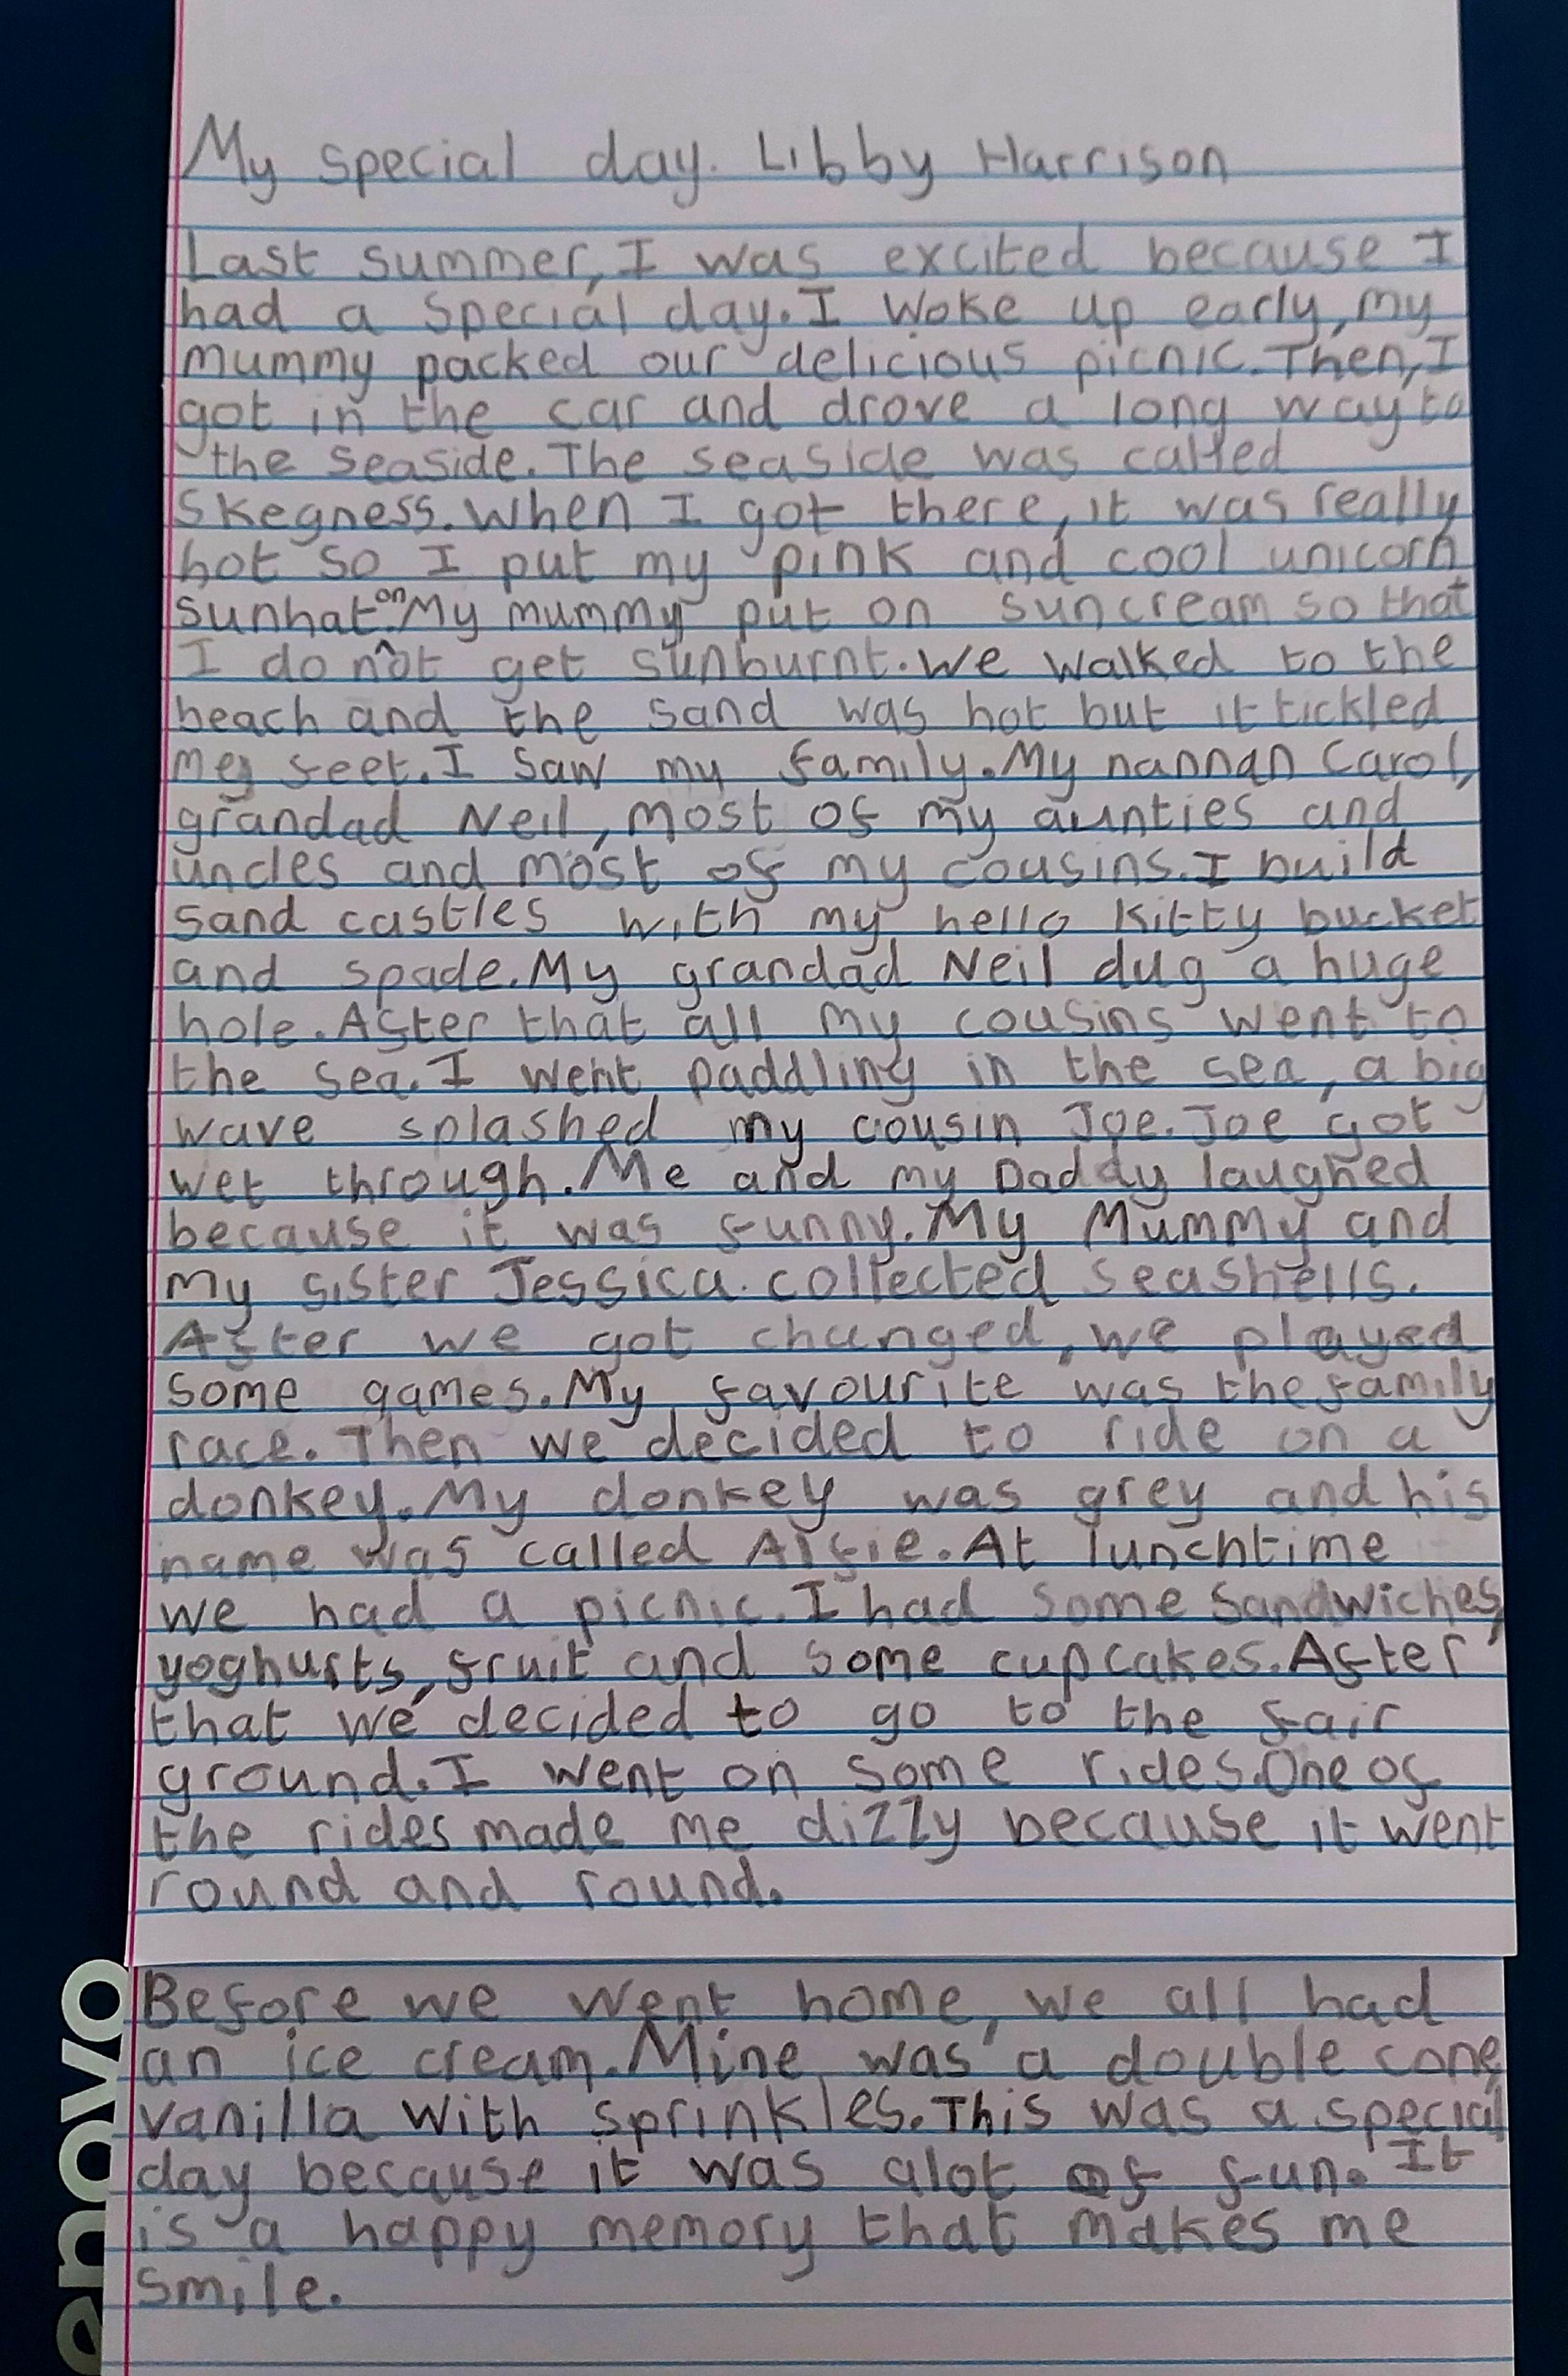 My special day. Libby Harrison
Last summer, I was excited because I
had a special day. I woke up early, my
mummy packed our delicious picnic. Then, I
got in the car and drove a long way to
the seaside. The seaside was called
Skegness. When I got there, it was really
hot so I put my pink and cool unicorn
sunhat on. My mummy put on suncream so that
I do not get sunburnt. We walked to the
beach and the sand was hot but it tickled
my feet. I saw my family. My nannan Carol,
grandad Neil, most of my aunties and
uncles and most of my cousins. I build
sand castles with my hello Kitty bucket
and spade. My grandad Neil dug a huge
hole. After that all my cousins went to
the sea. I went paddling in the sea, a big
wave splashed my cousin Joe. Joe got
wet through. Me and my Daddy laughed
because it was funny. My Mummy and
my sister Jessica collected seashells.
After we got changed, we played
some games. My favourite was the family
race. Then we decided to ride on a
donkey. My donkey was grey and his
name was called Alfie. At lunchtime
we had a picnic. I had some sandwiches,
yoghurts, fruit and some cupcakes. After
that we decided to go to the fair
ground. I went on some rides. One of
the rides made me dizzy because it went
round and round.
Before we went home, we all had
an ice cream. Mine was a double cone,
vanilla with sprinkles. This was a special
day because it was alot of fun. It
is a happy memory that makes me
smile.
enovo